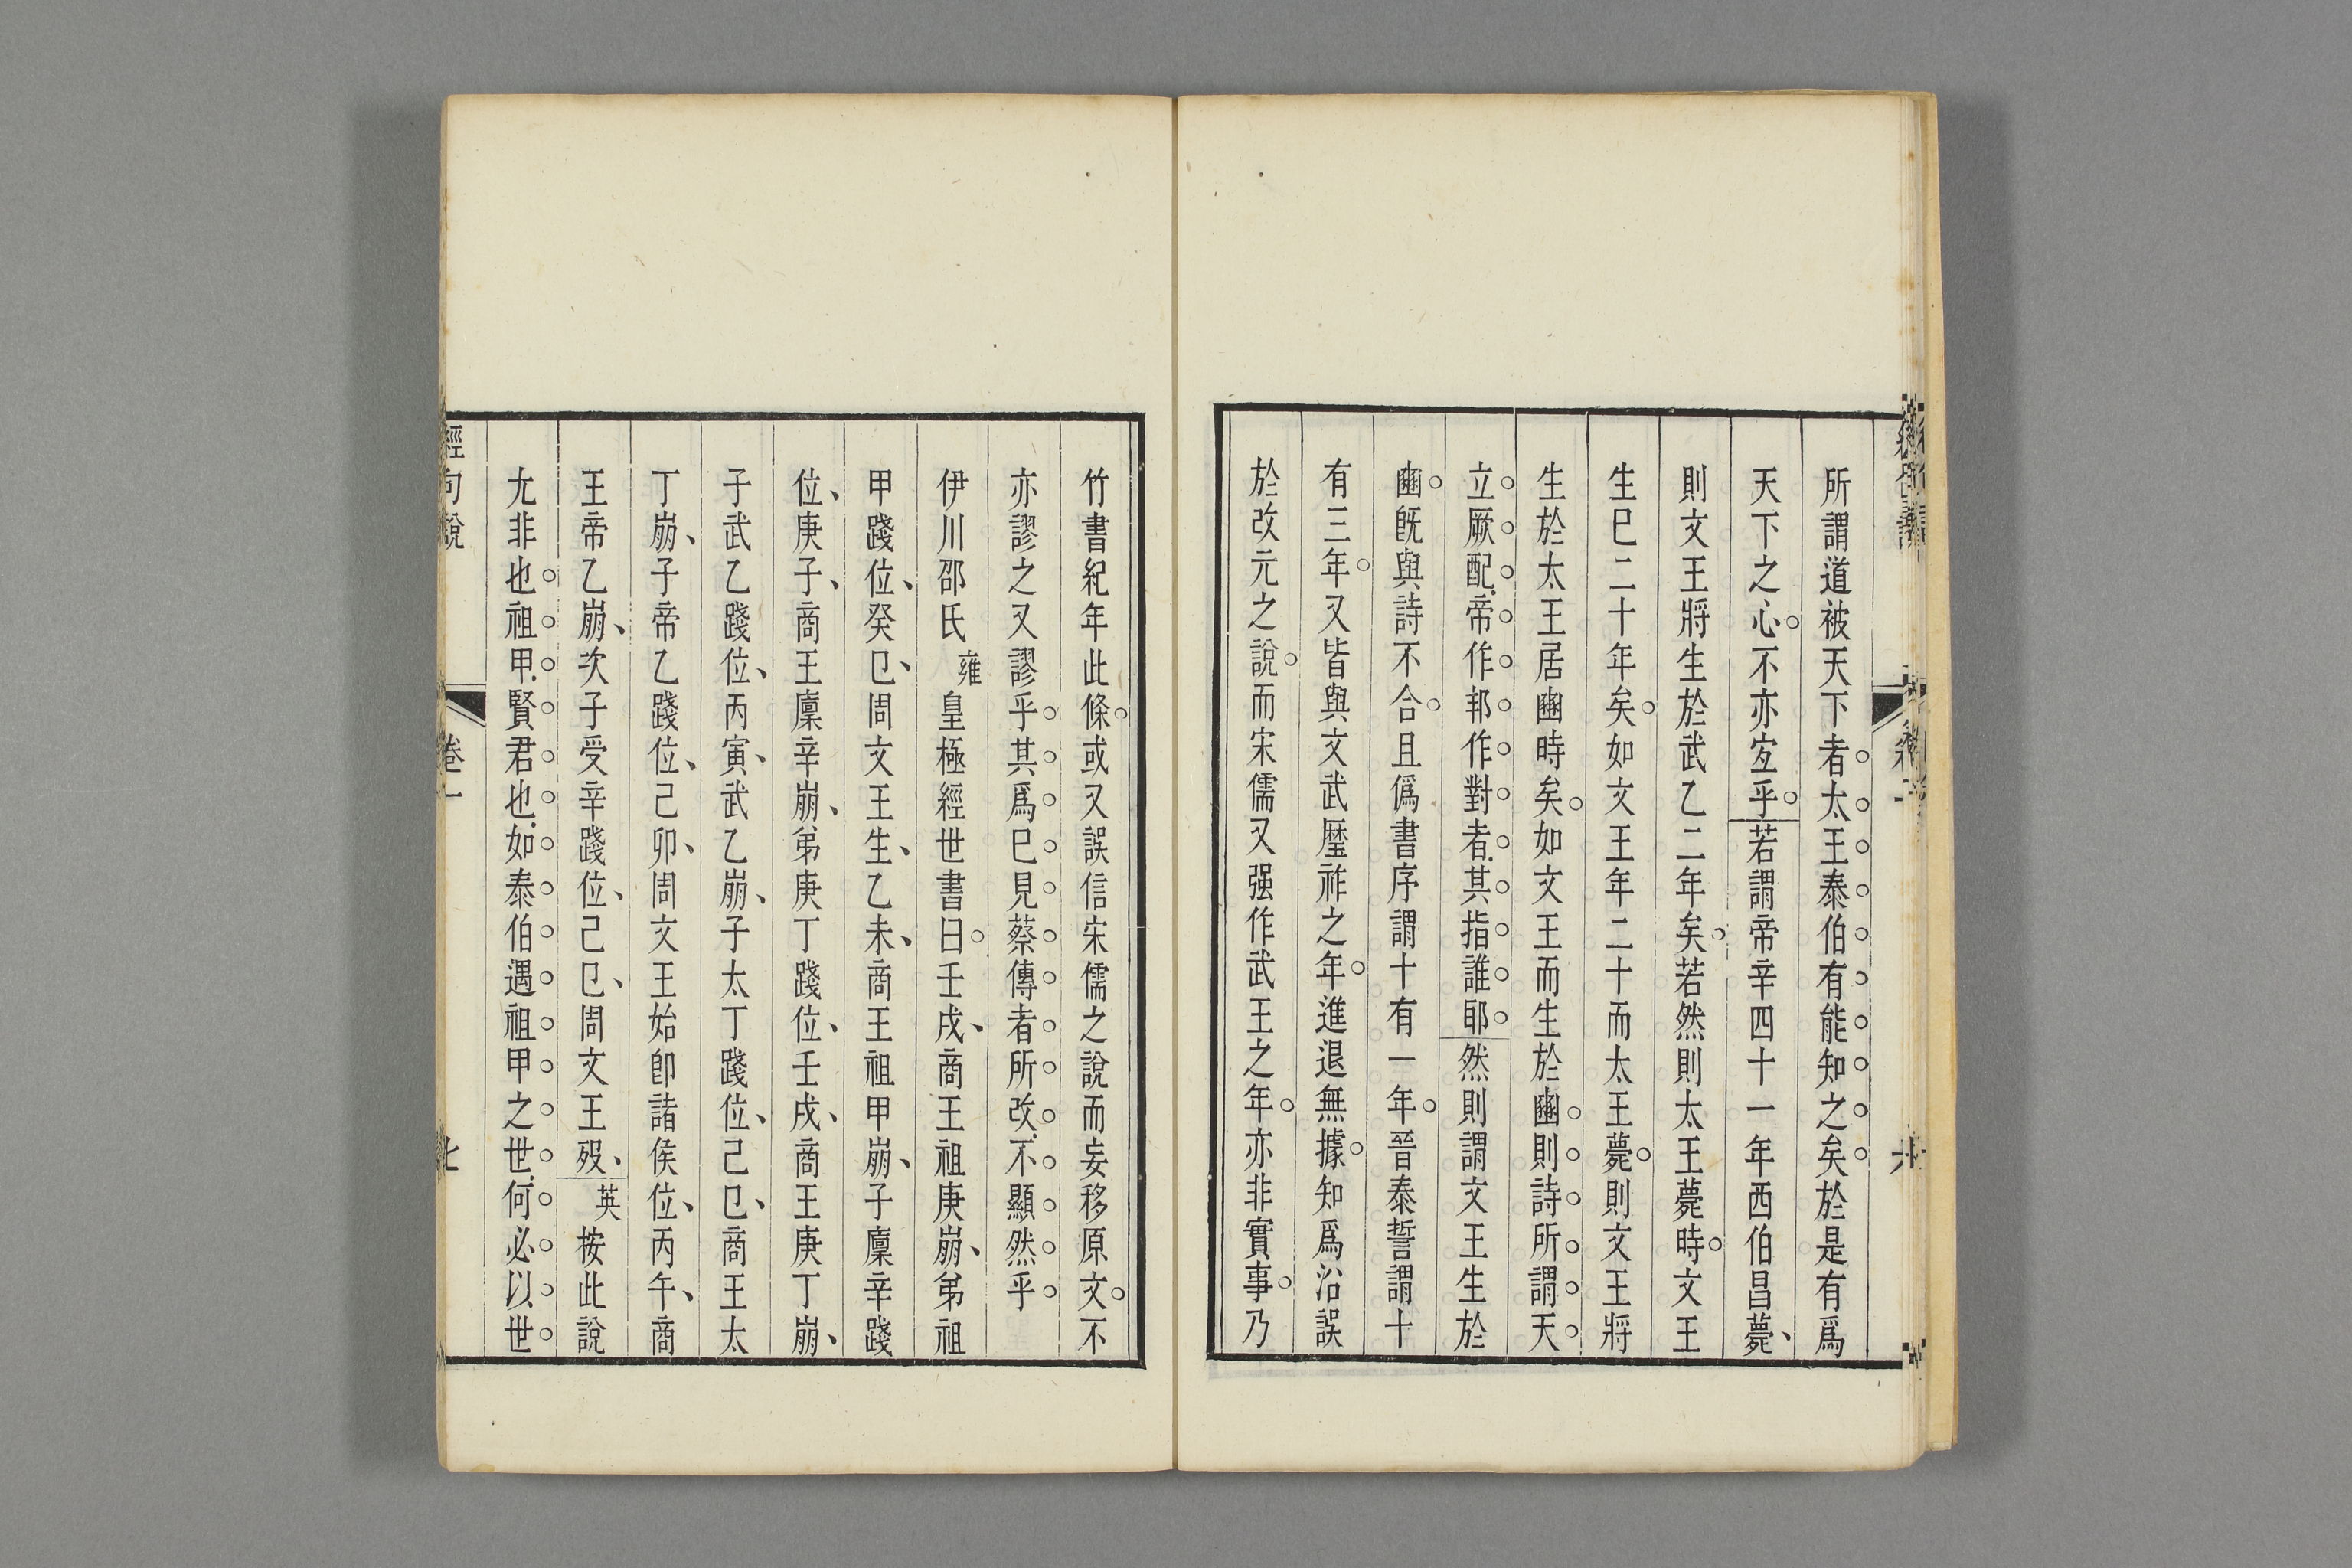 所謂道被天下者太王泰伯有能知之矣於是有爲
天下之心不亦宐乎若謂帝辛四十一年西伯昌薨
則文王將生於武乙二年矣若然則太王薨時文王
生巳二十年矣如文王年二十而太王薨則文王將
生於太王居豳時矣如文王而生於豳則詩所謂天
立厥配帝作邦作對者其指誰耶然則謂文王生於
豳旣與詩不合且僞書序謂十有一年晉泰誓謂十
有三年又皆與文武歷祚之年進退無據知爲沿誤
於改元之說而宋儒又强作武王之年亦非實事乃
竹書紀年此條或又誤信宋儒之說而妄移原文不
亦謬之又謬乎其爲巳見蔡傳者所改不顯然乎
伊川邵氏雍皇極經世書曰壬戌商王祖庚崩弟祖
甲踐位癸巳周文王生乙未商王祖甲崩子廩辛踐
位庚子商王廩辛崩弟庚丁踐位壬戌商王庚丁崩
子武乙踐位丙寅武乙崩子太丁踐位己巳商王太
丁崩子帝乙踐位己卯周文王始卽諸侯位丙午商
王帝乙崩次子受辛踐位己巳周文王歿英按此說
尤非也祖甲賢君也如泰伯遇祖甲之世何必以世
經句說
卷一
七